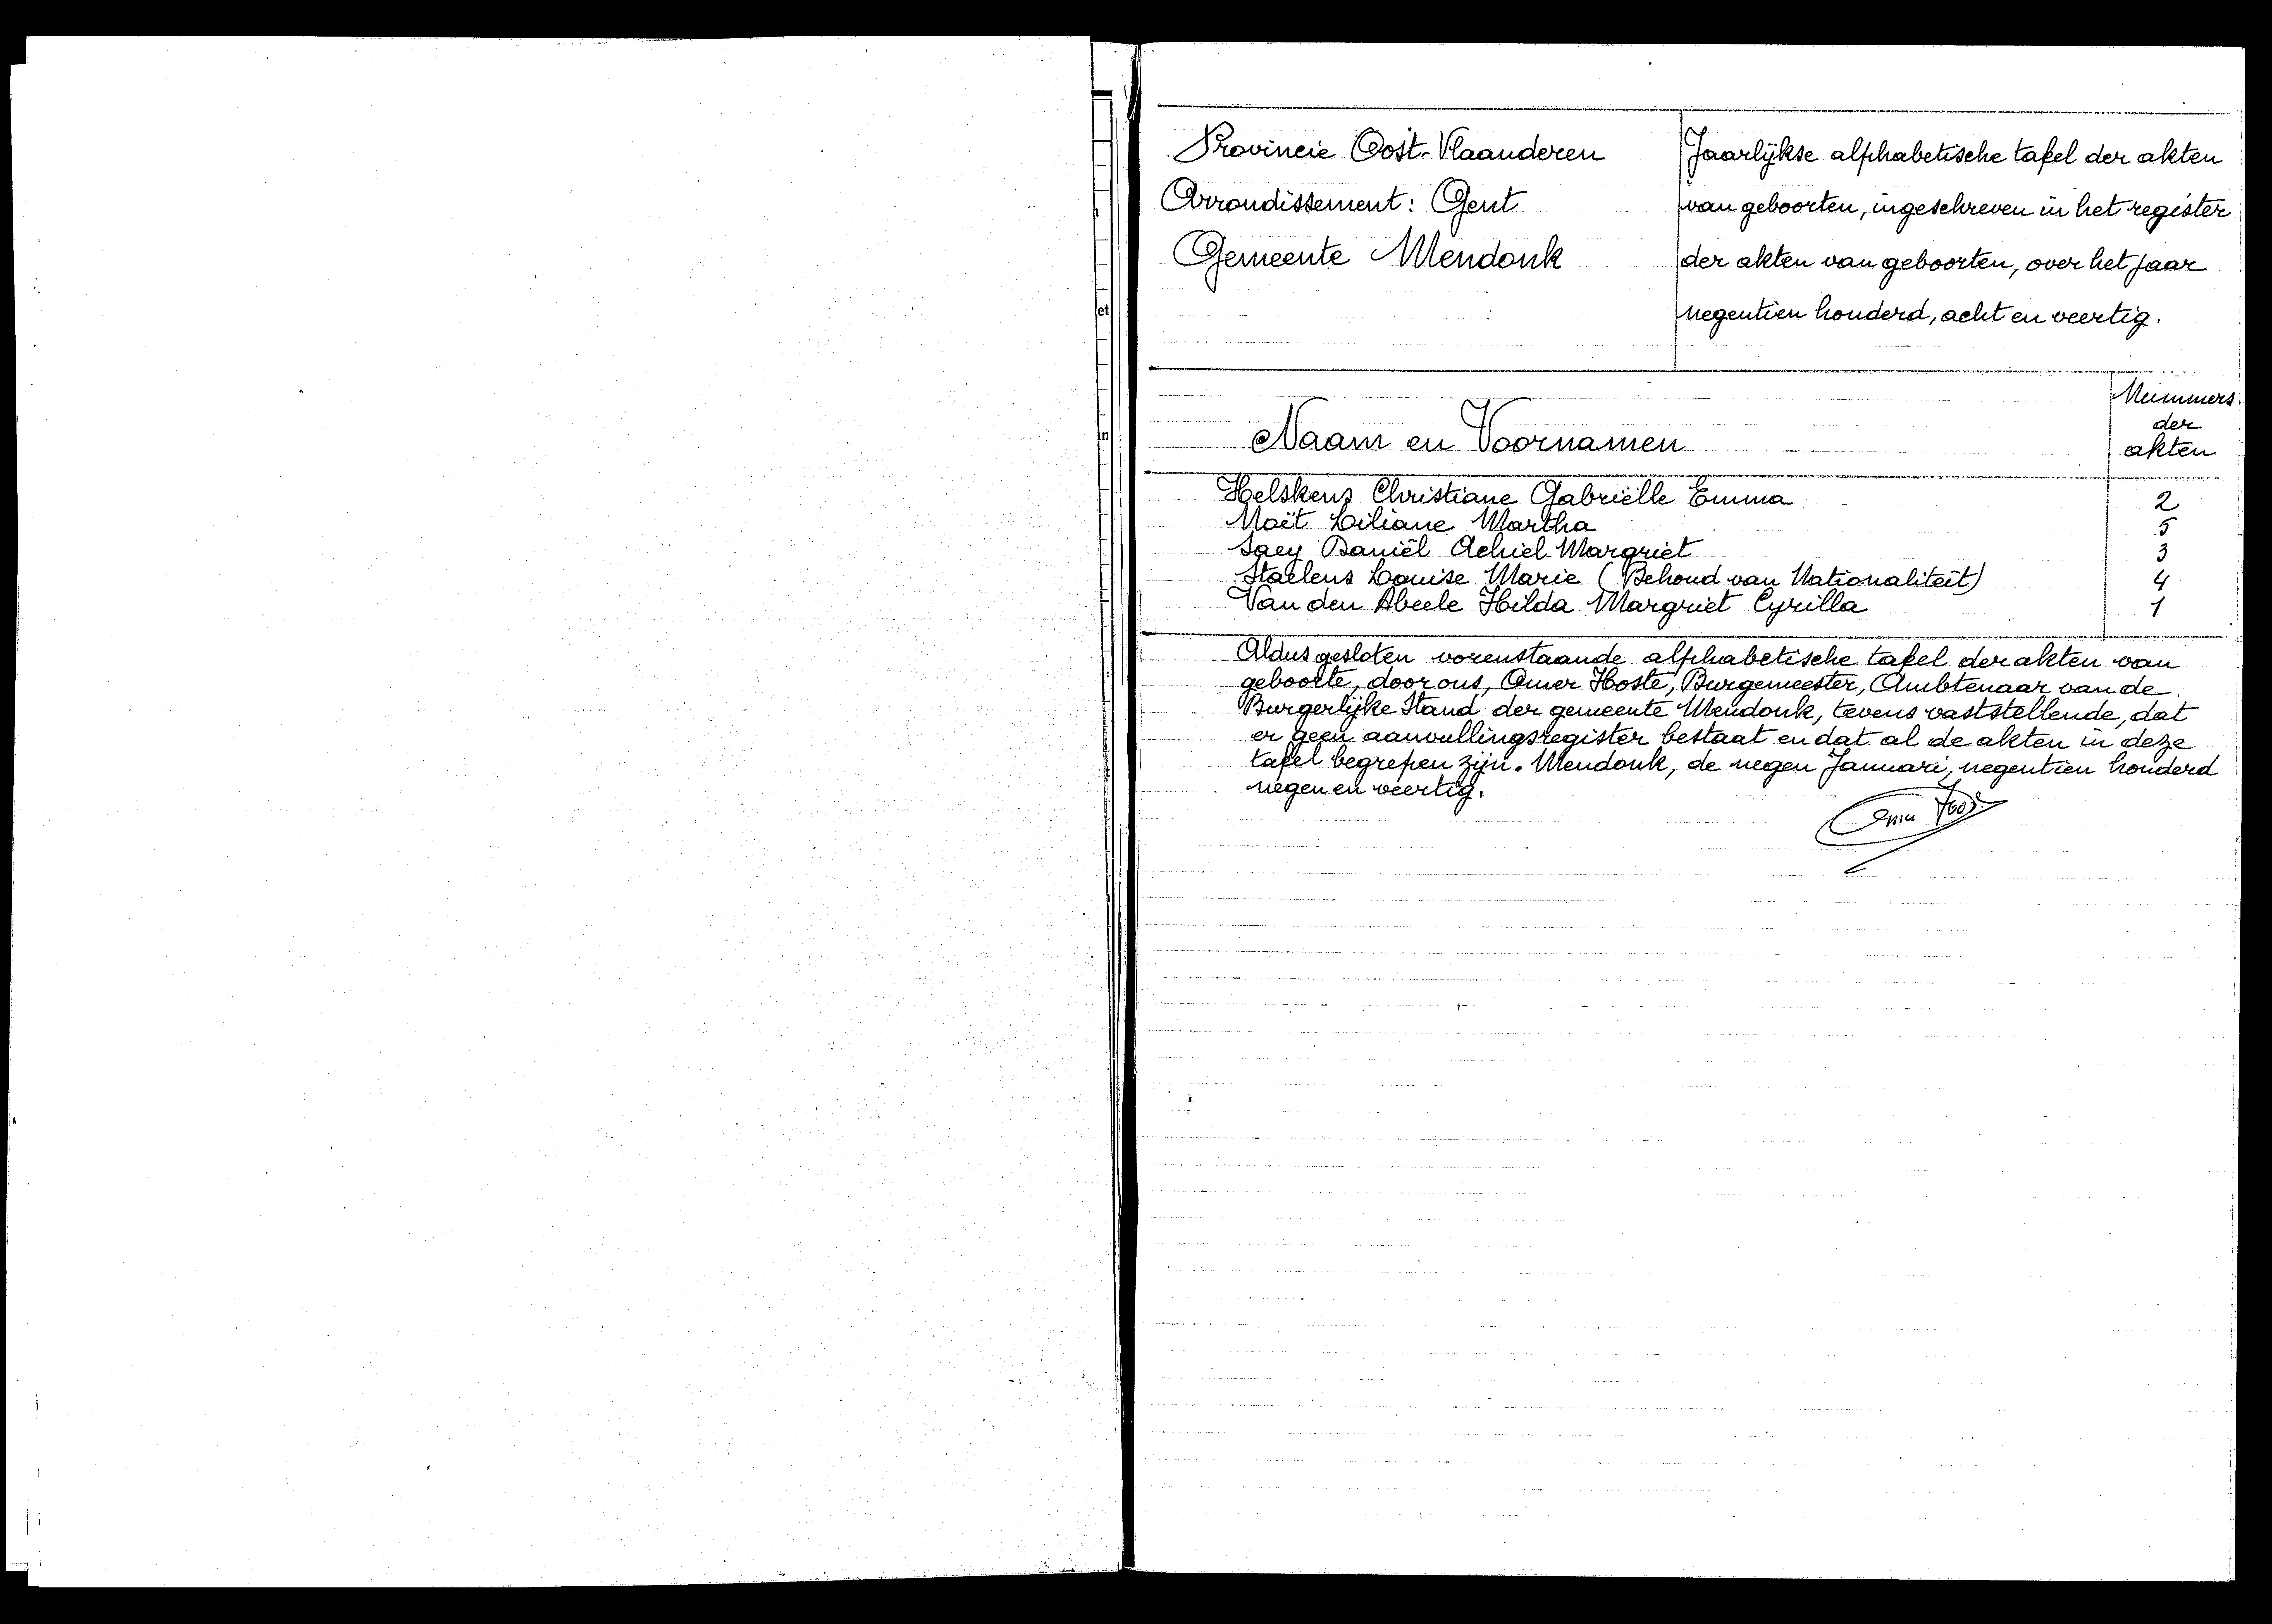 et
n
Provincie Oost-Vlaanderen
Arrondissement: Gent
Gemeente Mendonk
Jaarlijkse alphabetische tafel der akten
van geboorten, ingeschreven in het register
der akten van geboorten, over het jaar
negentien honderd, acht en veertig.
Naam en Voornamen
Nummers
der
akten
Helskens Christiane Gabriëlle Emma 2
Moët Liliane Martha 5
Saey Daniël Achiel Margriet 3
Staelens Louise Marie (Behoud van Nationaliteit) 4
Van den Abeele Hilda Margriet Cyrilla 1
Aldus gesloten vorenstaande alphabetische tafel der akten van
geboorte, door ons, Omer Hoste, Burgemeester, Ambtenaar van de
Burgerlijke Stand der gemeente Mendonk, tevens vaststellende, dat
er geen aanvullingsregister bestaat en dat al de akten in deze
tafel begrepen zijn. Mendonk, de negen Januari, negentien honderd
negen en veertig.